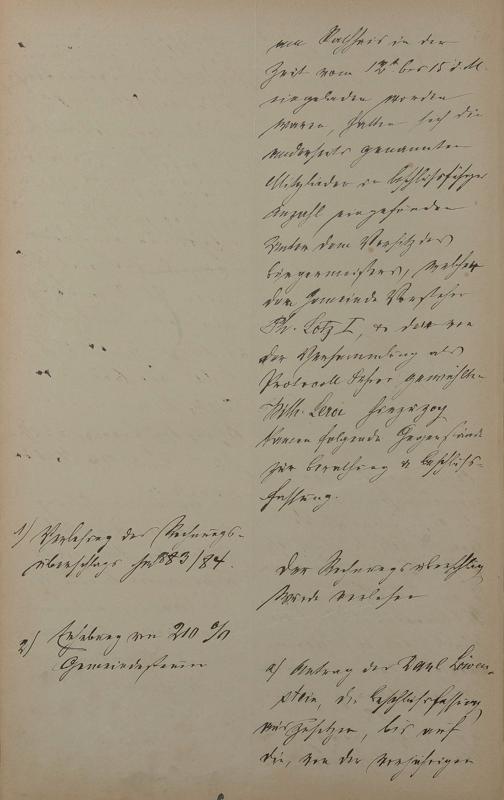 in der
Zeit vom 12t bis 15 d. M.
eingeladen worden
waren, hatten sich die
anderseits genannten
Mitglieder in beschlußfähiger
Anzahl eingefunden
Unter dem Vorsitz des
Bürgermeisters, welcher
dem Gemeinde Vorsteher
Ph. Lotz I, & der von
der Versammlung als
Protocoll Führer gewählte
Wilh. hinzuzog
kamen folgende Gegenstände
zur Berathung & Beschluß-
fassung.
1) Verlesung des Rechnungs-
überschlags für 1883/84.
Der Rechnungsüberschlag
wurde verlesen
2) Erhebung von 210 %
Gemeindesteuern
a) Antrag des Löwen-
stein, die Beschlußfassung
auszusetzen, bis auf
die, von der vorjährigen